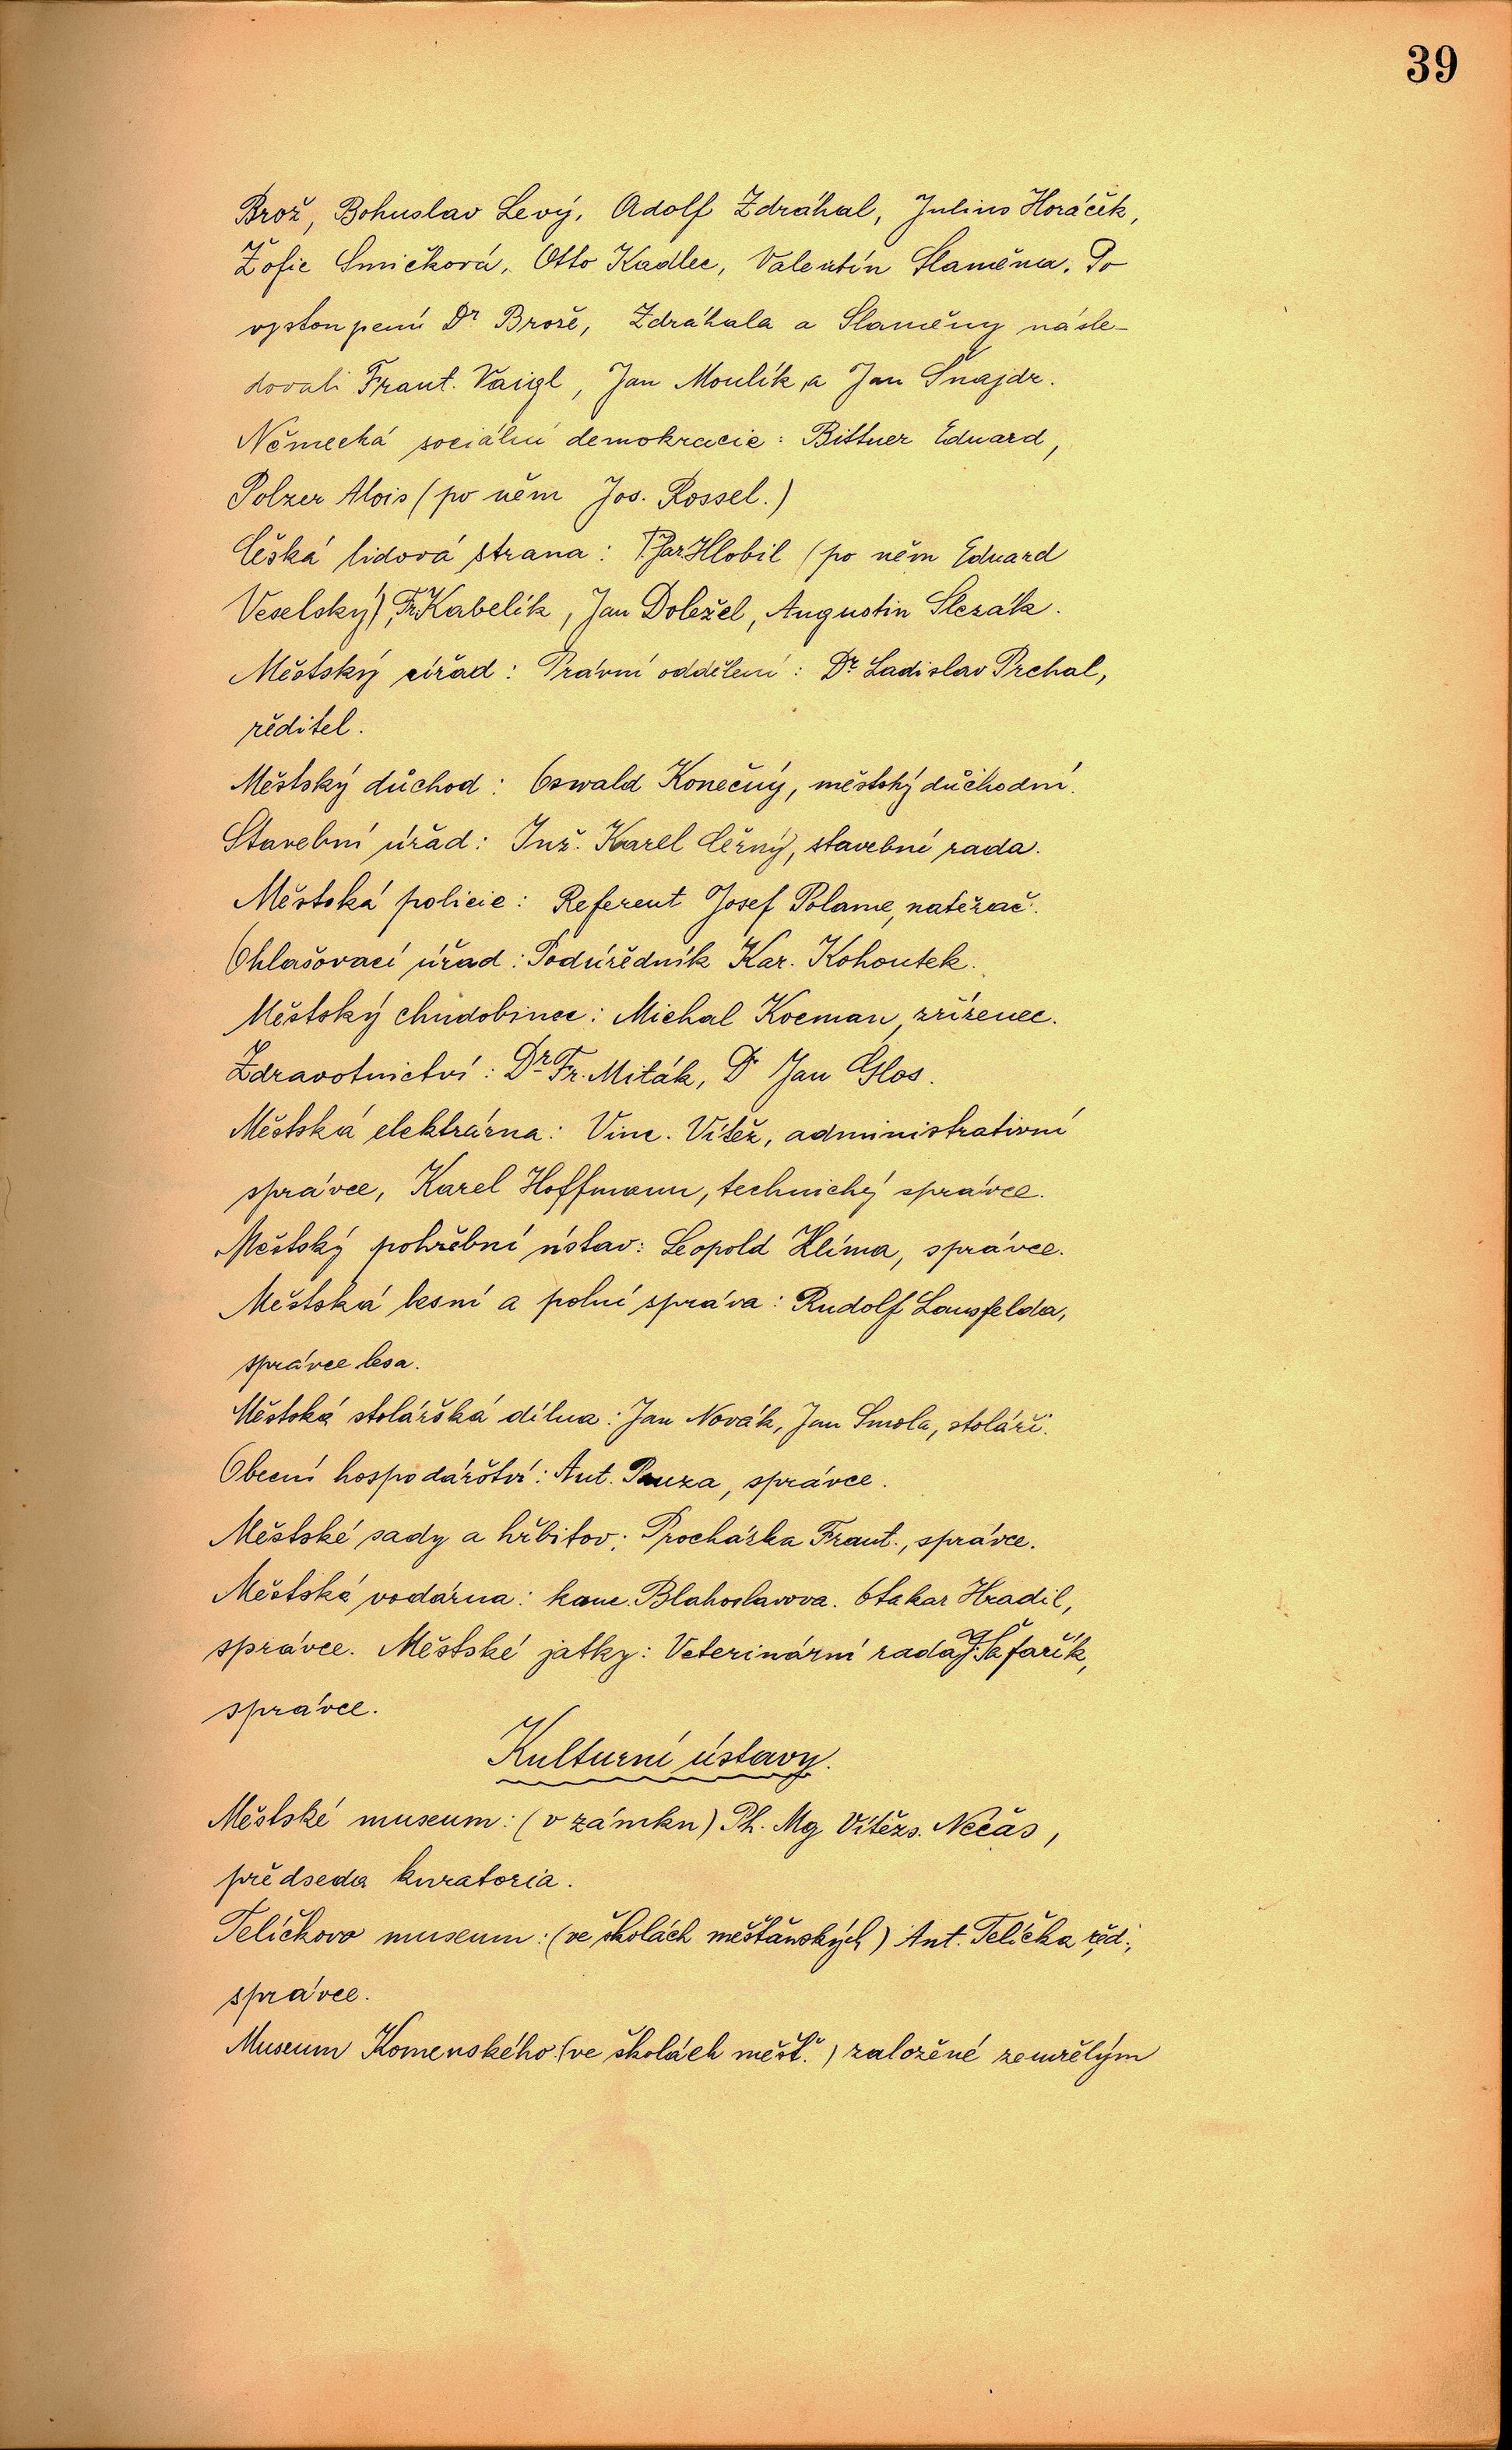 39
Brož, Bohuslav Levý, Adolf Zdráhal, Julius Horáček,
Žofie Smičková, Otto Kadlec, Valentín Slaměna. Po
vystoupení Dr Brože, Zdráhala a Slaměny násle-
dovali Frant. Vaigl, Jan Moulík, a Jan Šnajdr.
Německá sociální demokracie: Bittner Eduard,
Polzer Alois (po něm Jos. Rossel.)
Česká lidová strana: Hlobil (po něm Eduard
Veselský), Fr. Kabelík, Jan Doležel, Augustin Slezák.
Městský úřad: Právní oddělení: Dr Ladislav Prchal,
ředitel.
Městský důchod: Oswald Konečný, městský důchodní.
Stavební úřad: Inž. Karel Černý, stavební rada.
Městská policie: Referent Josef Polame,
Ohlašovací úřad: Podúředník Kar. Kohoutek.
Městský chudobinec: Michal Kocman, zřízenec.
Zdravotnictví: Dr Fr. Miták, Dr Jan Glos.
Městská elektrárna: Vinc. Vítěz, administrativní
správce, Karel Hoffmann, technický správce.
Městský pohřební ústav: Leopold Klíma, správce.
Městská lesní a polní správa: Rudolf Lausfelda,
správce lesa.
Městská stolářská dílna: Jan Novák, Jan Smola, stoláři.
Obecní hospodářství: Ant. Pauza, správce.
Městské sady a hřbitov: Procházka Frant., správce.
Městská vodárna: kanc. Blahoslavova. Otakar Hradil,
správce. Městské jatky: Veterinární rada J. Šafařík,
správce.
Kulturní ústavy.
Městské museum: (v zámku) Ph. Mg Vítězs. Nečas,
předseda kuratoria.
Teličkovo museum: (ve školách měšťanských) Ant. Telička řed.,
správce.
Museum Komenského (ve školách měšť.) založené zemřelým